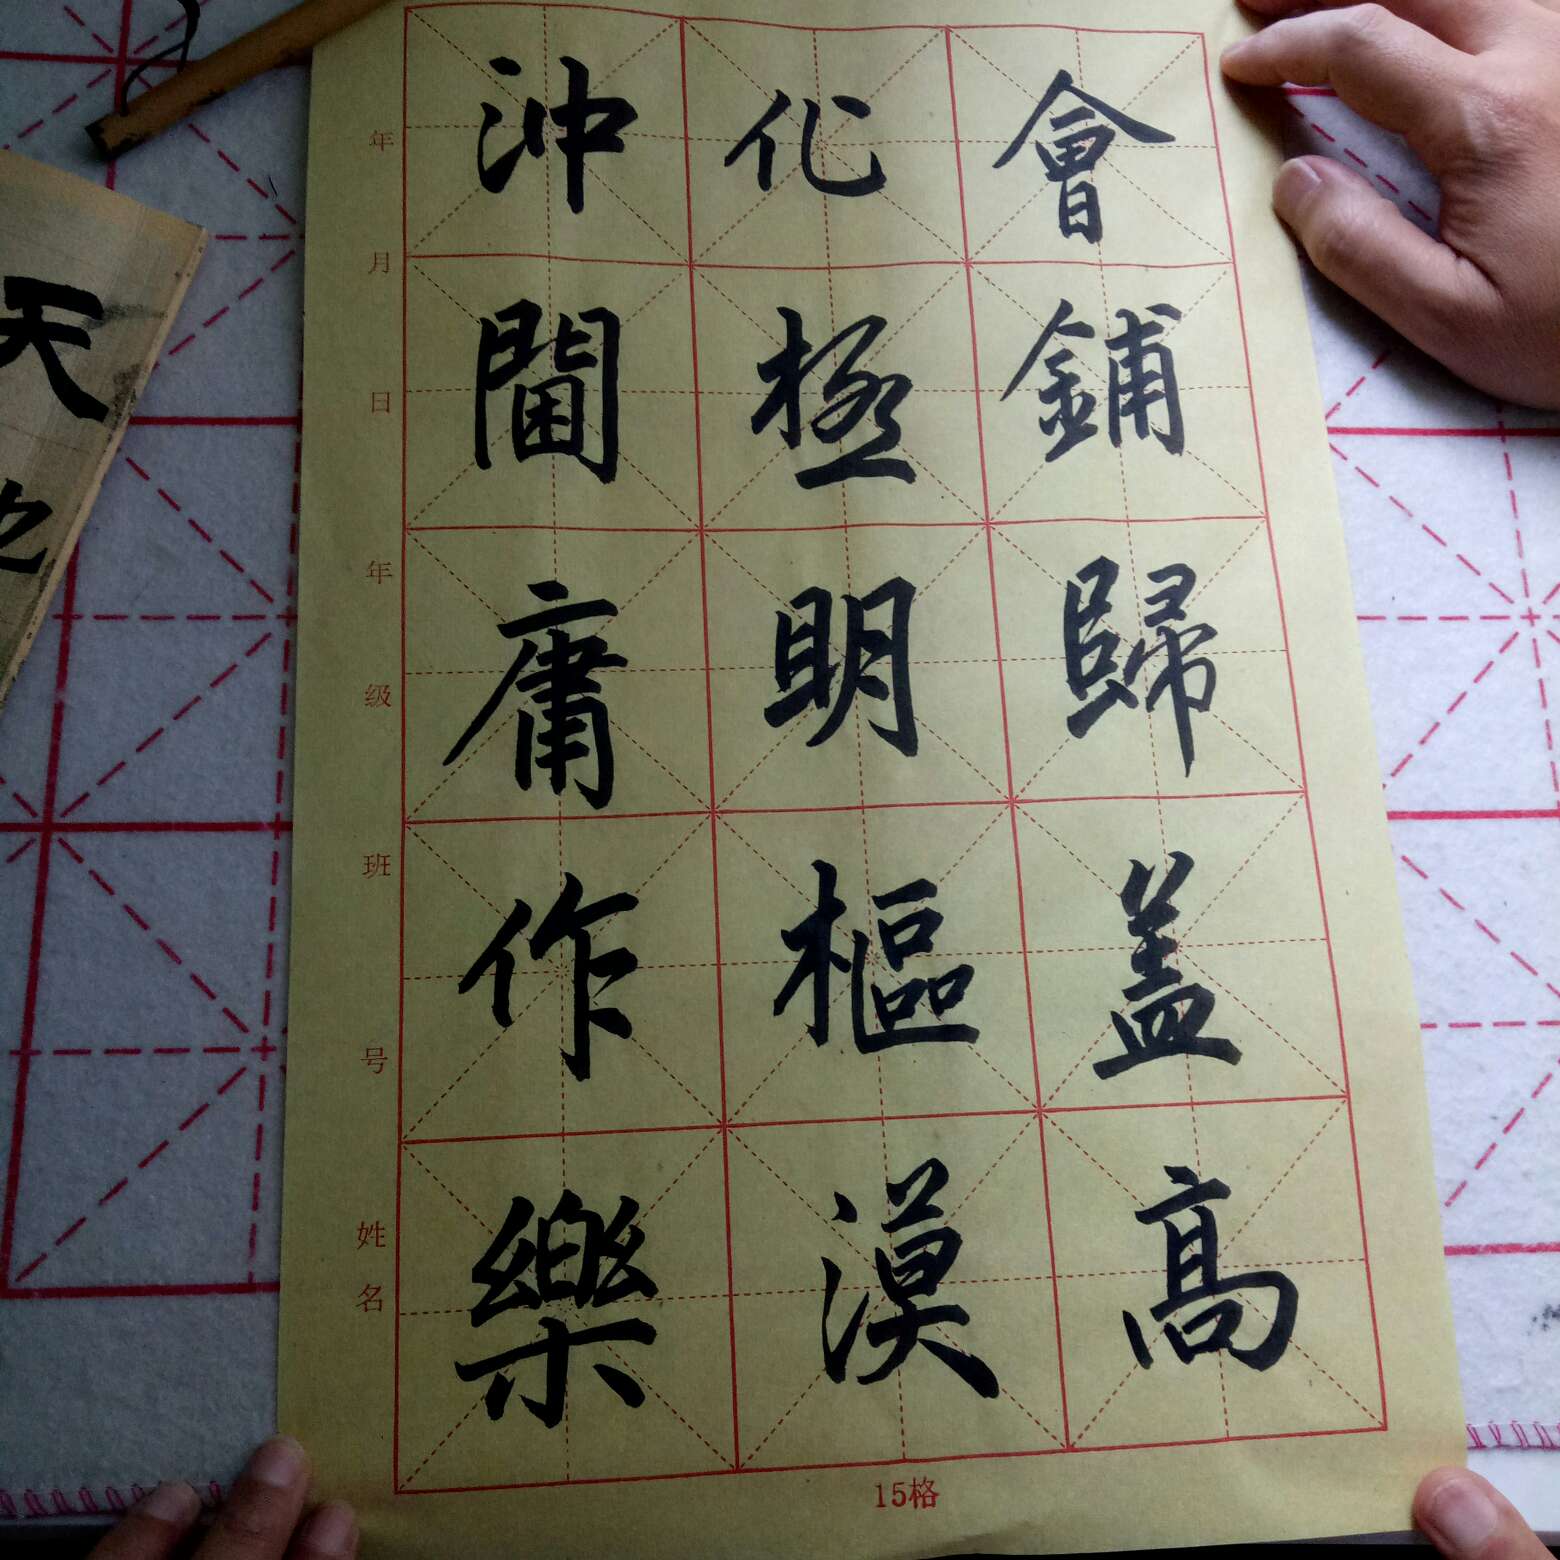 會鋪歸盖高
化極明樞漠
沖庸作樂
年月日年级班号姓名
15格
天